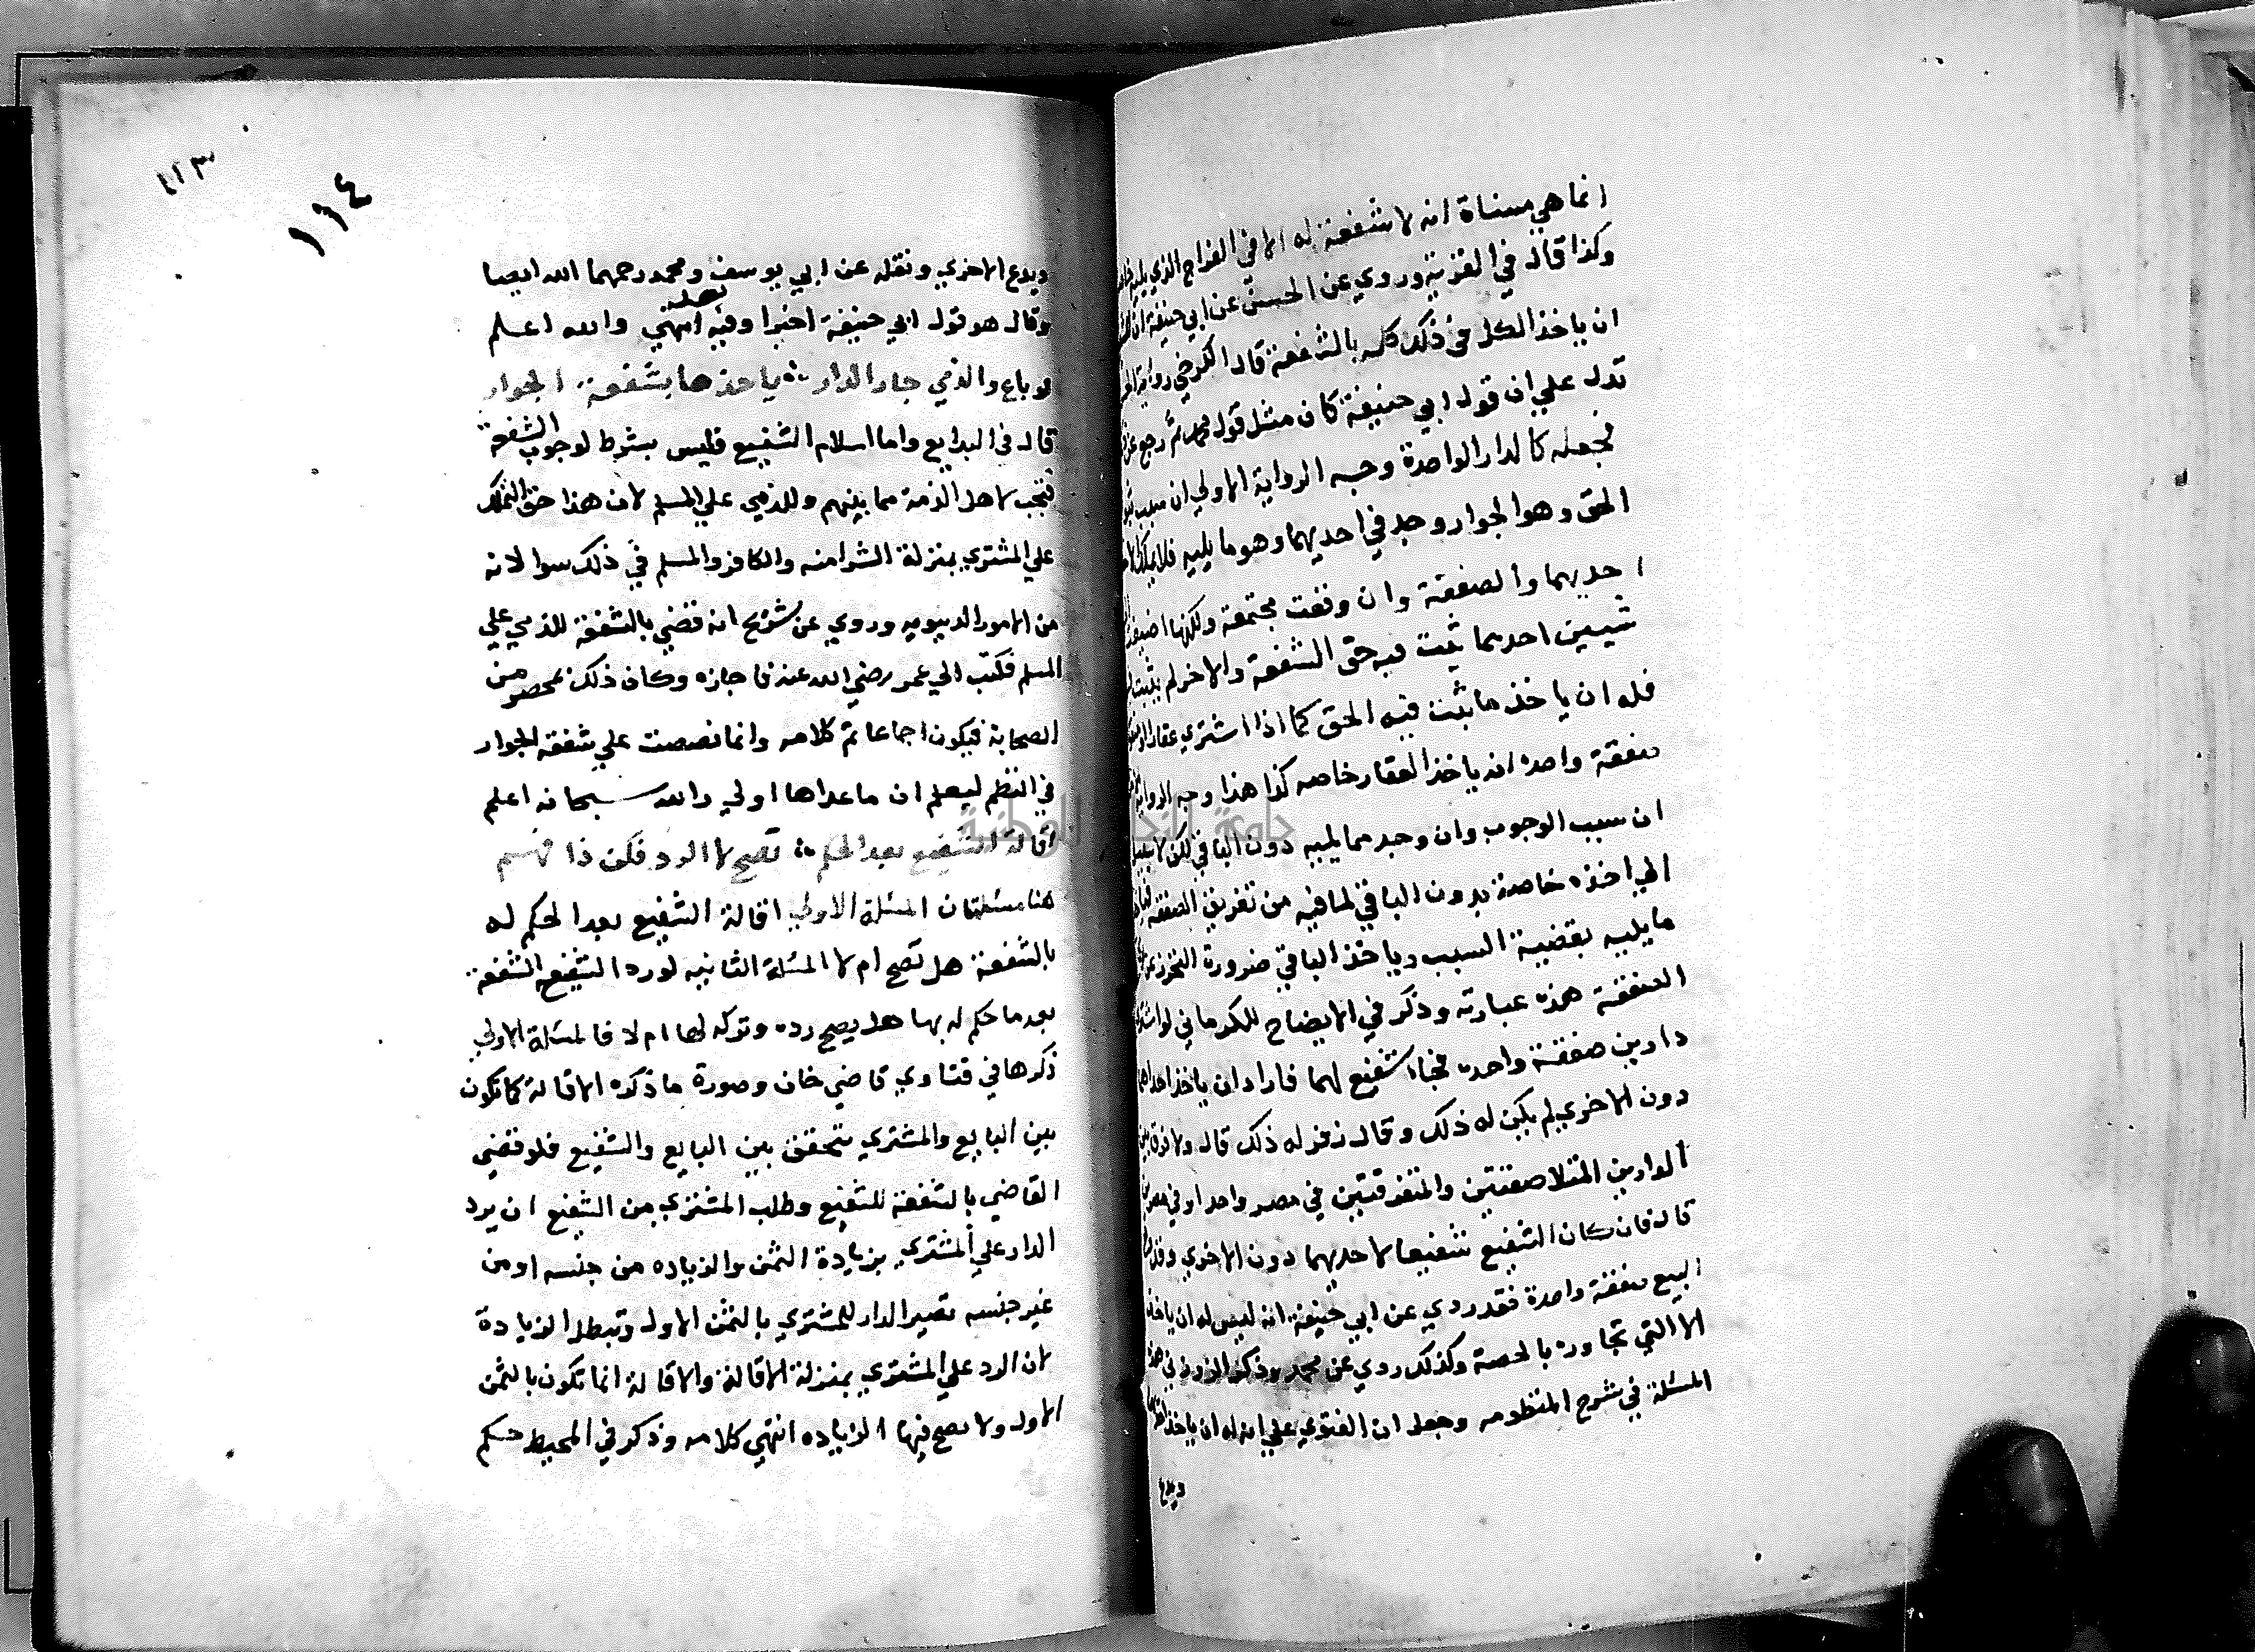 انما هي مسناة انه لا شفعة له الا في القراح الذي يليه خاصة
وكذا قال في القرية وروي عن الحسن عن ابي حنيفة ان
ان ياخذ الكل في ذلك كله بالشفعة قال الكرخي رواية
تدل علي ان قول ابي حنيفة كان مثل قول محمد ثم رجع عن
فجعله كالدار الواحدة وجه الرواية الاولي ان سبب
الحق وهو الجوار وجد في احديهما وهو ما يليه فلا
احديهما والصفقة وان وقعت مجتمعة ولكنها اضيفت
شيين احدهما ثبت فيه حق الشفعة والاخر لم يثبت
فله ان ياخذ ما ثبت فيه الحق كما اذا اشتري عقارا
صفقة واحده انه ياخذ العقار خاصه كذا هذا وجه الرواية
ان سبب الوجوب وان وجد مما يليه دون الباقي لكن لا سبيل
الي اخذه خاصة بدون الباقي لما فيه من تفريق الصفقة
ما يليه بقضية السبب وياخذ الباقي ضرورة التحرز عن
الصفقة هذه عبارته وذكر في الايضاح للكرماني لو اشتري
دارين صفقة واحده فجاء شفيع لهما فاراد ان ياخذ احداهما
دون الاخري لم يكن له ذلك وقال زفر له ذلك قال ولا فرق بين
الدارين المتلاصقتين والمتفرقتين في مصر واحد او في مصرين
قال فان كان الشفيع شفيعا لاحديهما دون الاخري
البيع صفقة واحدة فقد روي عن ابي حنيفة انه ليس له ان ياخذ
الا التي تجاوره بالحصة وكذلك روي عن محمد وذكر في هذه
المسئلة في شرح المنظومه وجعل ان الفتوي علي انه له ان ياخذ
ويدع
١١٣
١١٤
ويدع الاخري ونقله عن ابي يوسف ومحمد رحمهما الله ايضا
وقال هو قول ابي حنيفة اخيرا وفيه انتهي والله اعلم
لو باع والذي جار الدار ياخذها بشفعة الجوار
قال في البدايع واما اسلام الشفيع فليس بشرط لوجوب الشفعة
فتجب لاهل الذمة مما بينهم وللذمي علي المسلم لان هذا حق التملك
علي المشتري بمنزلة الشرا منه والكافر والمسلم في ذلك سوا لانه
من الامور الدنيويه وروي عن شريح انه قضي بالشفعة للذمي علي
المسلم فكتب الي عمر رضي الله عنه فاجازه وكان ذلك بمحضر من
الصحابة فيكون اجماعا تم كلامه وانما نصصت علي شفعة الجوار
في النظم ليعلم ان ما عداها اولي والله سبحانه اعلم
اقالة الشفيع بعد الحكم تصح لا الرد فكن ذا فهم
هنا مسئلتان المسئلة الاولي اقالة الشفيع بعد الحكم له
بالشفعة هل تصح ام لا المسئلة الثانيه لو رد الشفيع الشفعة
بعد ما حكم له بها هل يصح رده وتركه لها ام لا فالمسئلة الاولي
ذكرها في فتاوي قاضي خان وصورة ما ذكره الاقالة كما تكون
بين البايع والمشتري تتحقق بين البايع والشفيع فلو قضي
القاضي بالشفعة للشفيع وطلب المشتري من الشفيع ان يرد
الدار علي المشتري بزيادة الثمن والزياده من جنسه او من
غير جنسه تصير الدار للمشتري بالثمن الاول وتبطل الزيادة
لان الرد علي المشتري بمنزلة الاقالة والاقالة انما تكون بالثمن
الاول ولا يصح فيها الزياده انتهي كلامه وذكر في المحيط حكم